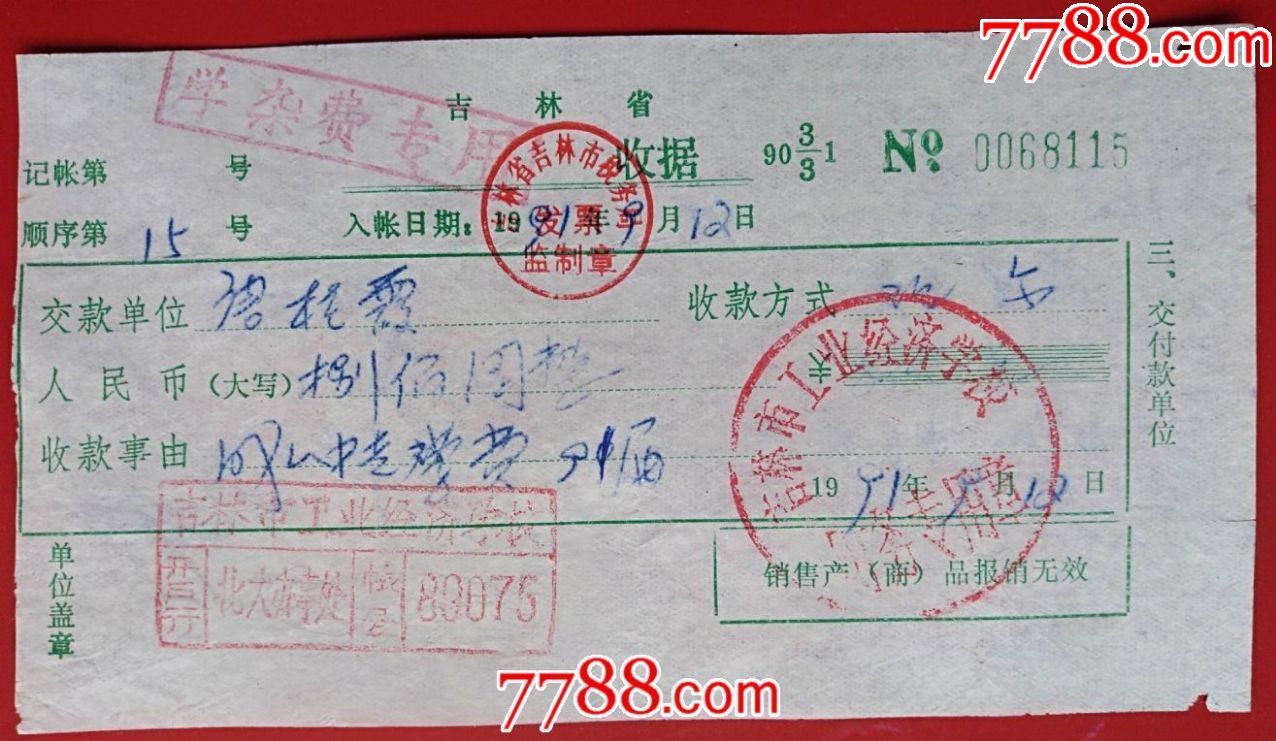 7788.com
学杂费专用
吉林省
收据
90 3/3 1
№ 0068115
记帐第 号
吉林省吉林市税务局
发票
监制章
顺序第 15 号
入帐日期：1991年9月12日
交款单位
收款方式
人民币（大写）捌佰圆整
收款事由
吉林市工业经济学校
1991年9月12日
三、交付款单位
单位盖章
吉林市工业经济学校
开户行
帐号
83075
销售产（商）品报销无效
7788.com